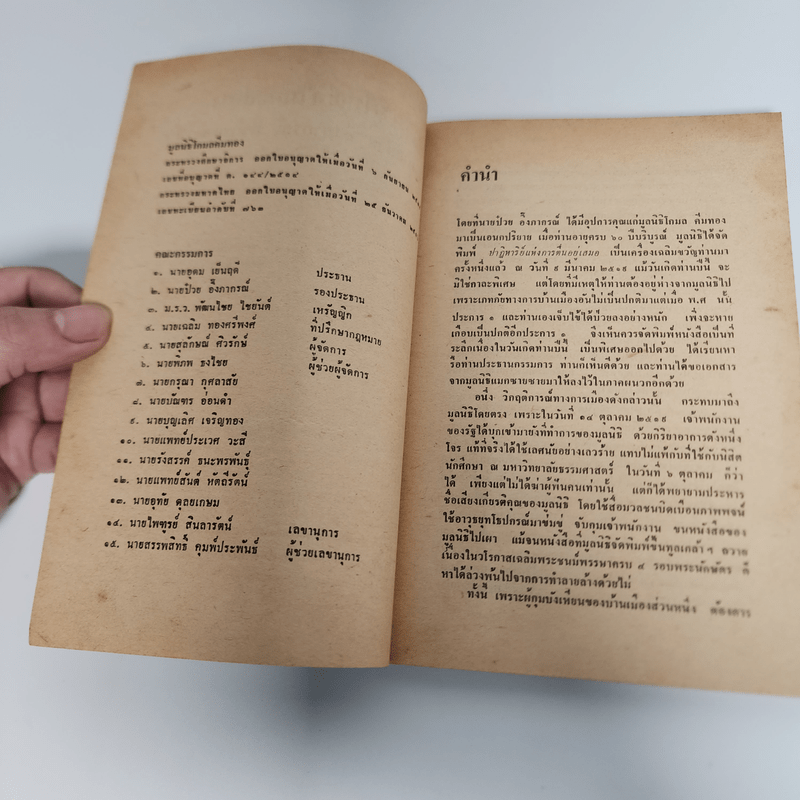 มูลนิธิโกมลคีมทอง
กระทรวงศึกษาธิการ ออกใบอนุญาตให้เมื่อวันที่ ๖ กันยายน
เลขที่อนุญาตที่ ต. ๑๔๔/๒๕๑๔
กระทรวงมหาดไทย ออกใบอนุญาตให้เมื่อวันที่ ๒๕ ธันวาคม
เลขทะเบียนลำดับที่ ๗๖๓
คณะกรรมการ
๑. นายอุดม เย็นฤดี ประธาน
๒. นายป๋วย อึ๊งภากรณ์ รองประธาน
๓. ม.ร.ว. พัฒนไชย ไชยันต์ เหรัญญิก
๔. นายเฉลิม ทองศรีพงศ์ ที่ปรึกษากฎหมาย
๕. นายสุลักษณ์ ศิวรักษ์ ผู้จัดการ
๖. นายพิภพ ธงไชย ผู้ช่วยผู้จัดการ
๗. นายกรุณา กุศลาสัย
๘. นายบัณฑร อ่อนดำ
๙. นายบุญเลิศ เจริญทอง
๑๐. นายแพทย์ประเวศ วะสี
๑๑. นายรังสรรค์ ธนะพรพันธุ์
๑๒. นายแพทย์สันต์ หัตถีรัตน์
๑๓. นายอุทัย ดุลยเกษม
๑๔. นายไพฑูรย์ สินลารัตน์ เลขานุการ
๑๕. นายสรรพสิทธิ์ คุมพ์ประพันธ์ ผู้ช่วยเลขานุการ
คำนำ
โดยที่นายป๋วย อึ๊งภากรณ์ ได้มีอุปการคุณแก่มูลนิธิโกมล คีมทอง
มาเป็นเอนกปริยาย เมื่อท่านอายุครบ ๖๐ ปีบริบูรณ์ มูลนิธิได้จัด
พิมพ์ ปาฏิหาริย์แห่งการตื่นอยู่เสมอ เป็นเครื่องเฉลิมขวัญท่านมา
ครั้งหนึ่งแล้ว ณ วันที่ ๙ มีนาคม ๒๕๑๙ แม้วันเกิดท่านปีนี้ จะ
มิใช่กาละพิเศษ แต่โดยที่มีเหตุให้ท่านต้องอยู่ห่างจากมูลนิธิไป
เพราะเภทภัยทางการบ้านเมืองอันไม่เป็นปกติมาแต่เมื่อ พ.ศ นั้น
ประการ ๑ และท่านเองเจ็บไข้ได้ป่วยลงอย่างหนัก เพิ่งจะหาย
เกือบเป็นปกติอีกประการ ๑ จึงเห็นควรจัดพิมพ์หนังสือเป็นที่
ระลึกเนื่องในวันเกิดท่านปีนี้ เป็นพิเศษออกไปด้วย ได้เรียนหา
รือท่านประธานกรรมการ ท่านก็เห็นดีด้วย และท่านได้ขอเอกสาร
จากมูลนิธิแมกซายซายมาให้ลงไว้ในภาคผนวกอีกด้วย
อนึ่ง วิกฤติการณ์ทางการเมืองดังกล่าวนั้น กระทบมาถึง
มูลนิธิโดยตรง เพราะในวันที่ ๑๔ ตุลาคม ๒๕๑๙ เจ้าพนักงาน
ของรัฐได้บุกเข้ามายังที่ทำการของมูลนิธิ ด้วยกิริยาอาการดังหนึ่ง
โจร แท้ที่จริงได้ใช้เลศนัยอย่างเลวร้าย แทบไม่แพ้กับที่ใช้กับนิสิต
นักศึกษา ณ มหาวิทยาลัยธรรมศาสตร์ ในวันที่ ๖ ตุลาคม ก็ว่า
ได้ เพียงแต่ไม่ได้ฆ่าผู้ฟันคนเท่านั้น แต่ก็ได้พยายามประหาร
ชื่อเสียงเกียรติคุณของมูลนิธิ โดยใช้สื่อมวลชนบิดเบือนภาพพจน์
ใช้อาวุธยุทโธปกรณ์มาข่มขู่ จับกุมเจ้าพนักงาน ขนหนังสือของ
มูลนิธิไปเผา แม้จนหนังสือที่มูลนิธิจัดพิมพ์ขึ้นทูลเกล้าฯ ถวาย
เนื่องในวโรกาสเฉลิมพระชนม์พรรษาครบ ๔ รอบพระนักษัตร ก็
หาได้ล่วงพ้นไปจากการทำลายล้างด้วยไม่
ทั้งนี้ เพราะผู้กุมบังเหียนของบ้านเมืองส่วนหนึ่ง ต้องการ